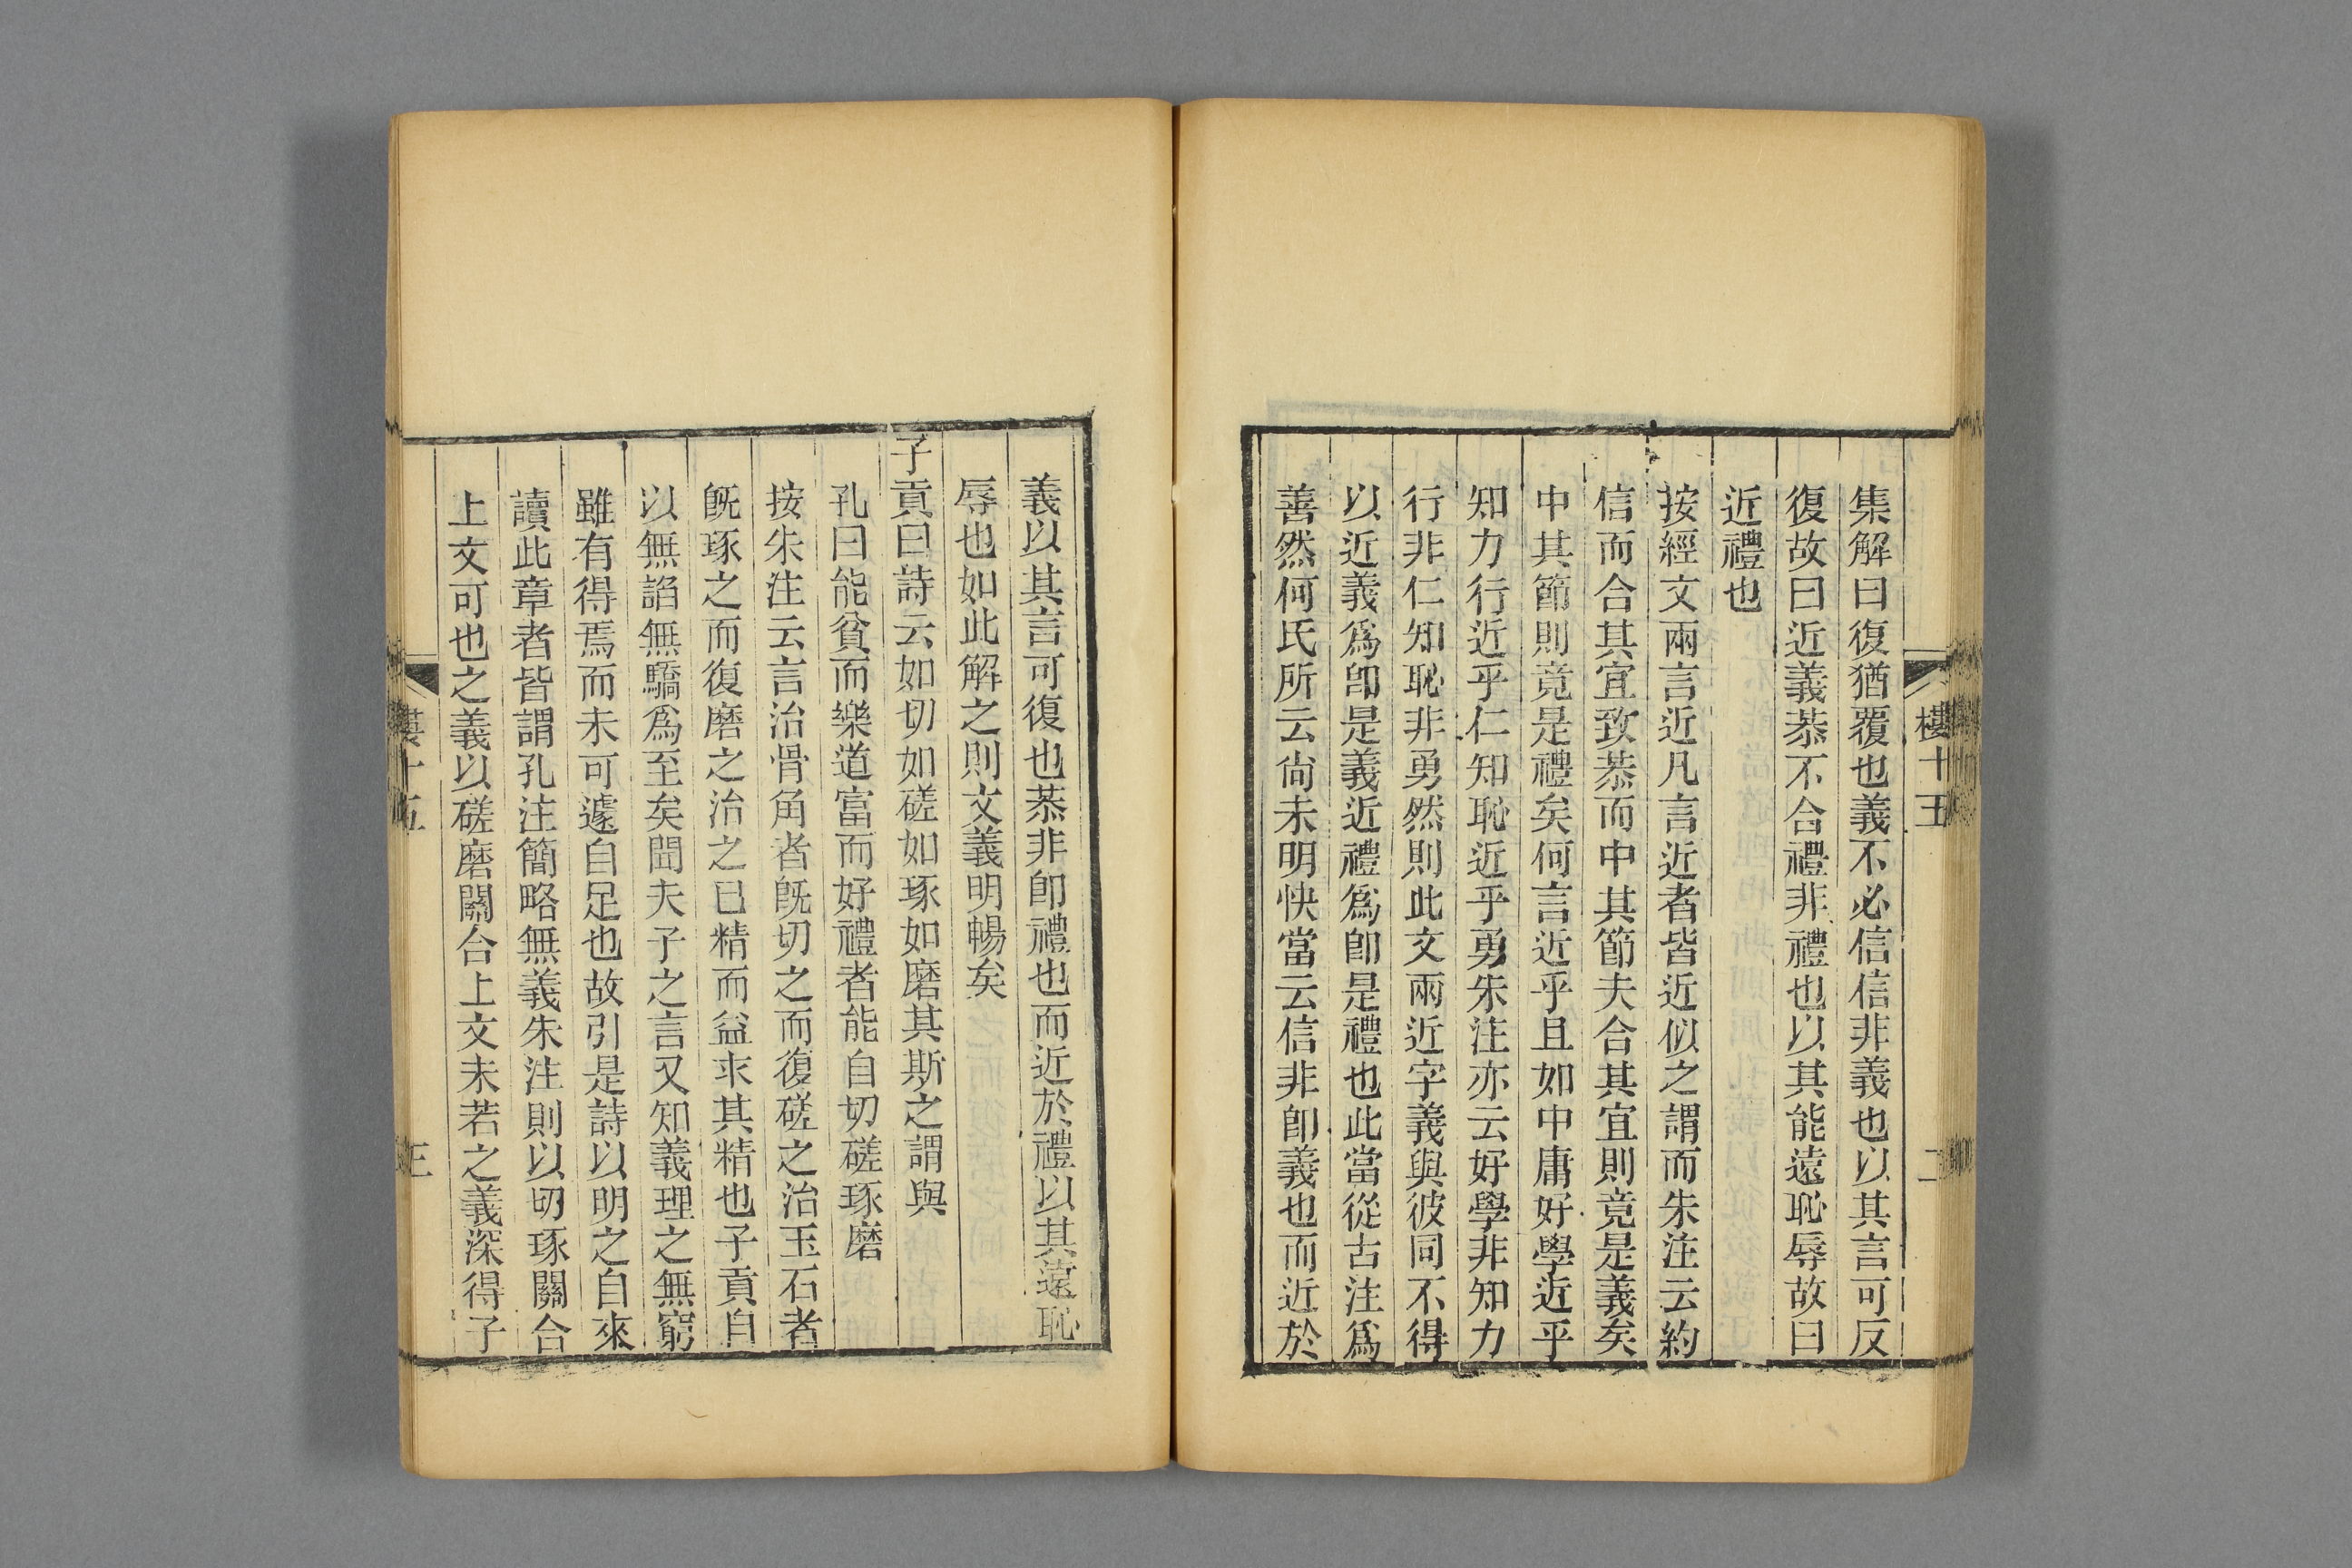 樓十五
二
集解曰復猶覆也義不必信信非義也以其言可反
復故曰近義恭不合禮非禮也以其能遠恥辱故曰
近禮也
按經文兩言近凡言近者皆近似之謂而朱注云約
信而合其宜致恭而中其節夫合其宜則竟是義矣
中其節則竟是禮矣何言近乎且如中庸好學近乎
知力行近乎仁知恥近乎勇朱注亦云好學非知力
行非仁知恥非勇然則此文兩近字義與彼同不得
以近義爲卽是義近禮爲卽是禮也此當從古注爲
善然何氏所云尙未明快當云信非卽義也而近於
義以其言可復也恭非卽禮也而近於禮以其遠恥
辱也如此解之則文義明暢矣
子貢曰詩云如切如磋如琢如磨其斯之謂與
孔曰能貧而樂道富而好禮者能自切磋琢磨
按朱注云言治骨角者旣切之而復磋之治玉石者
旣琢之而復磨之治之已精而益求其精也子貢自
以無諂無驕爲至矣聞夫子之言又知義理之無窮
雖有得焉而未可遽自足也故引是詩以明之自來
讀此章者皆謂孔注簡略無義朱注則以切琢關合
上文可也之義以磋磨關合上文未若之義深得子
樓十五
三